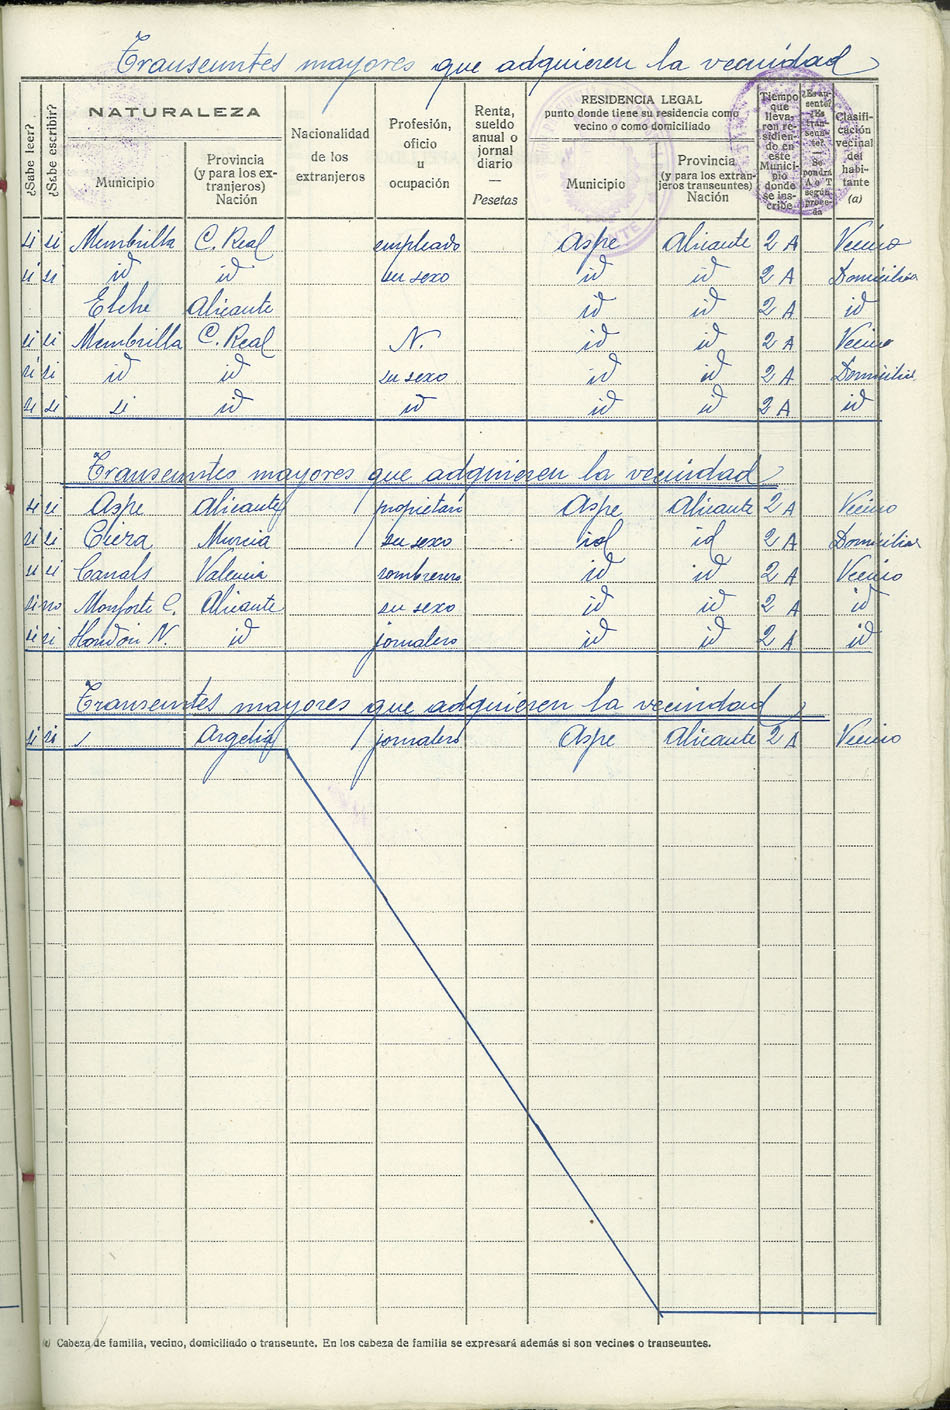 Transeuntes mayores que adquieren la vecindad
¿Sabe leer?
¿Sabe escribir?
NATURALEZA
Municipio
Provincia
(y para los ex-
tranjeros)
Nación
Nacionalidad
de los
extranjeros
Profesión,
oficio
u
ocupación
Renta,
sueldo
anual o
jornal
diario
—
Pesetas
RESIDENCIA LEGAL
punto donde tiene su residencia como
vecino o como domiciliado
Municipio
Provincia
(y para los extran-
jeros transeuntes)
Nación
Tiempo
que
lleva-
ren re-
sidien-
do en
este
Munici-
pio
donde
se ins-
cribe
Clasifi-
cación
vecinal
del
habi-
tante
(a)
si si Membrilla C. Real empleado Aspe Alicante 2 A Vecino
si si id id su sexo id id 2 A Domicilia
Elche Alicante id id 2 A id
si si Membrilla C. Real N. id id 2 A Vecino
si si id id su sexo id id 2 A Domicilia
si si si id id id id 2 A id
Transeuntes mayores que adquieren la vecindad
si si Aspe Alicante propietari Aspe Alicante 2 A Vecino
si si Cieza Murcia su sexo id id 2 A Domicilia
si si Canals Valencia sombrerero id id 2 A Vecino
si no Monforte C. Alicante su sexo id id 2 A id
si si Hondón N. id jornalero id id 2 A id
Transeuntes mayores que adquieren la vecindad
si si Argelia jornalero Aspe Alicante 2 A Vecino
(a) Cabeza de familia, vecino, domiciliado o transeunte. En los cabeza de familia se expresará además si son vecinos o transeuntes.